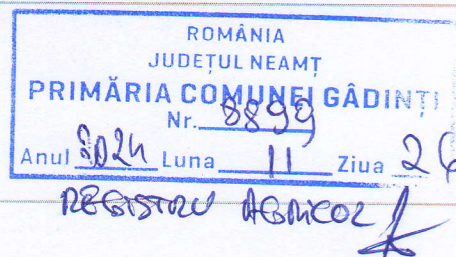 ROMÂNIA
JUDEȚUL NEAMȚ
PRIMĂRIA COMUNEI GÂDINȚI
Nr. 8899
Anul 2024 Luna 11 Ziua 26
REGISTRU AGRICOL